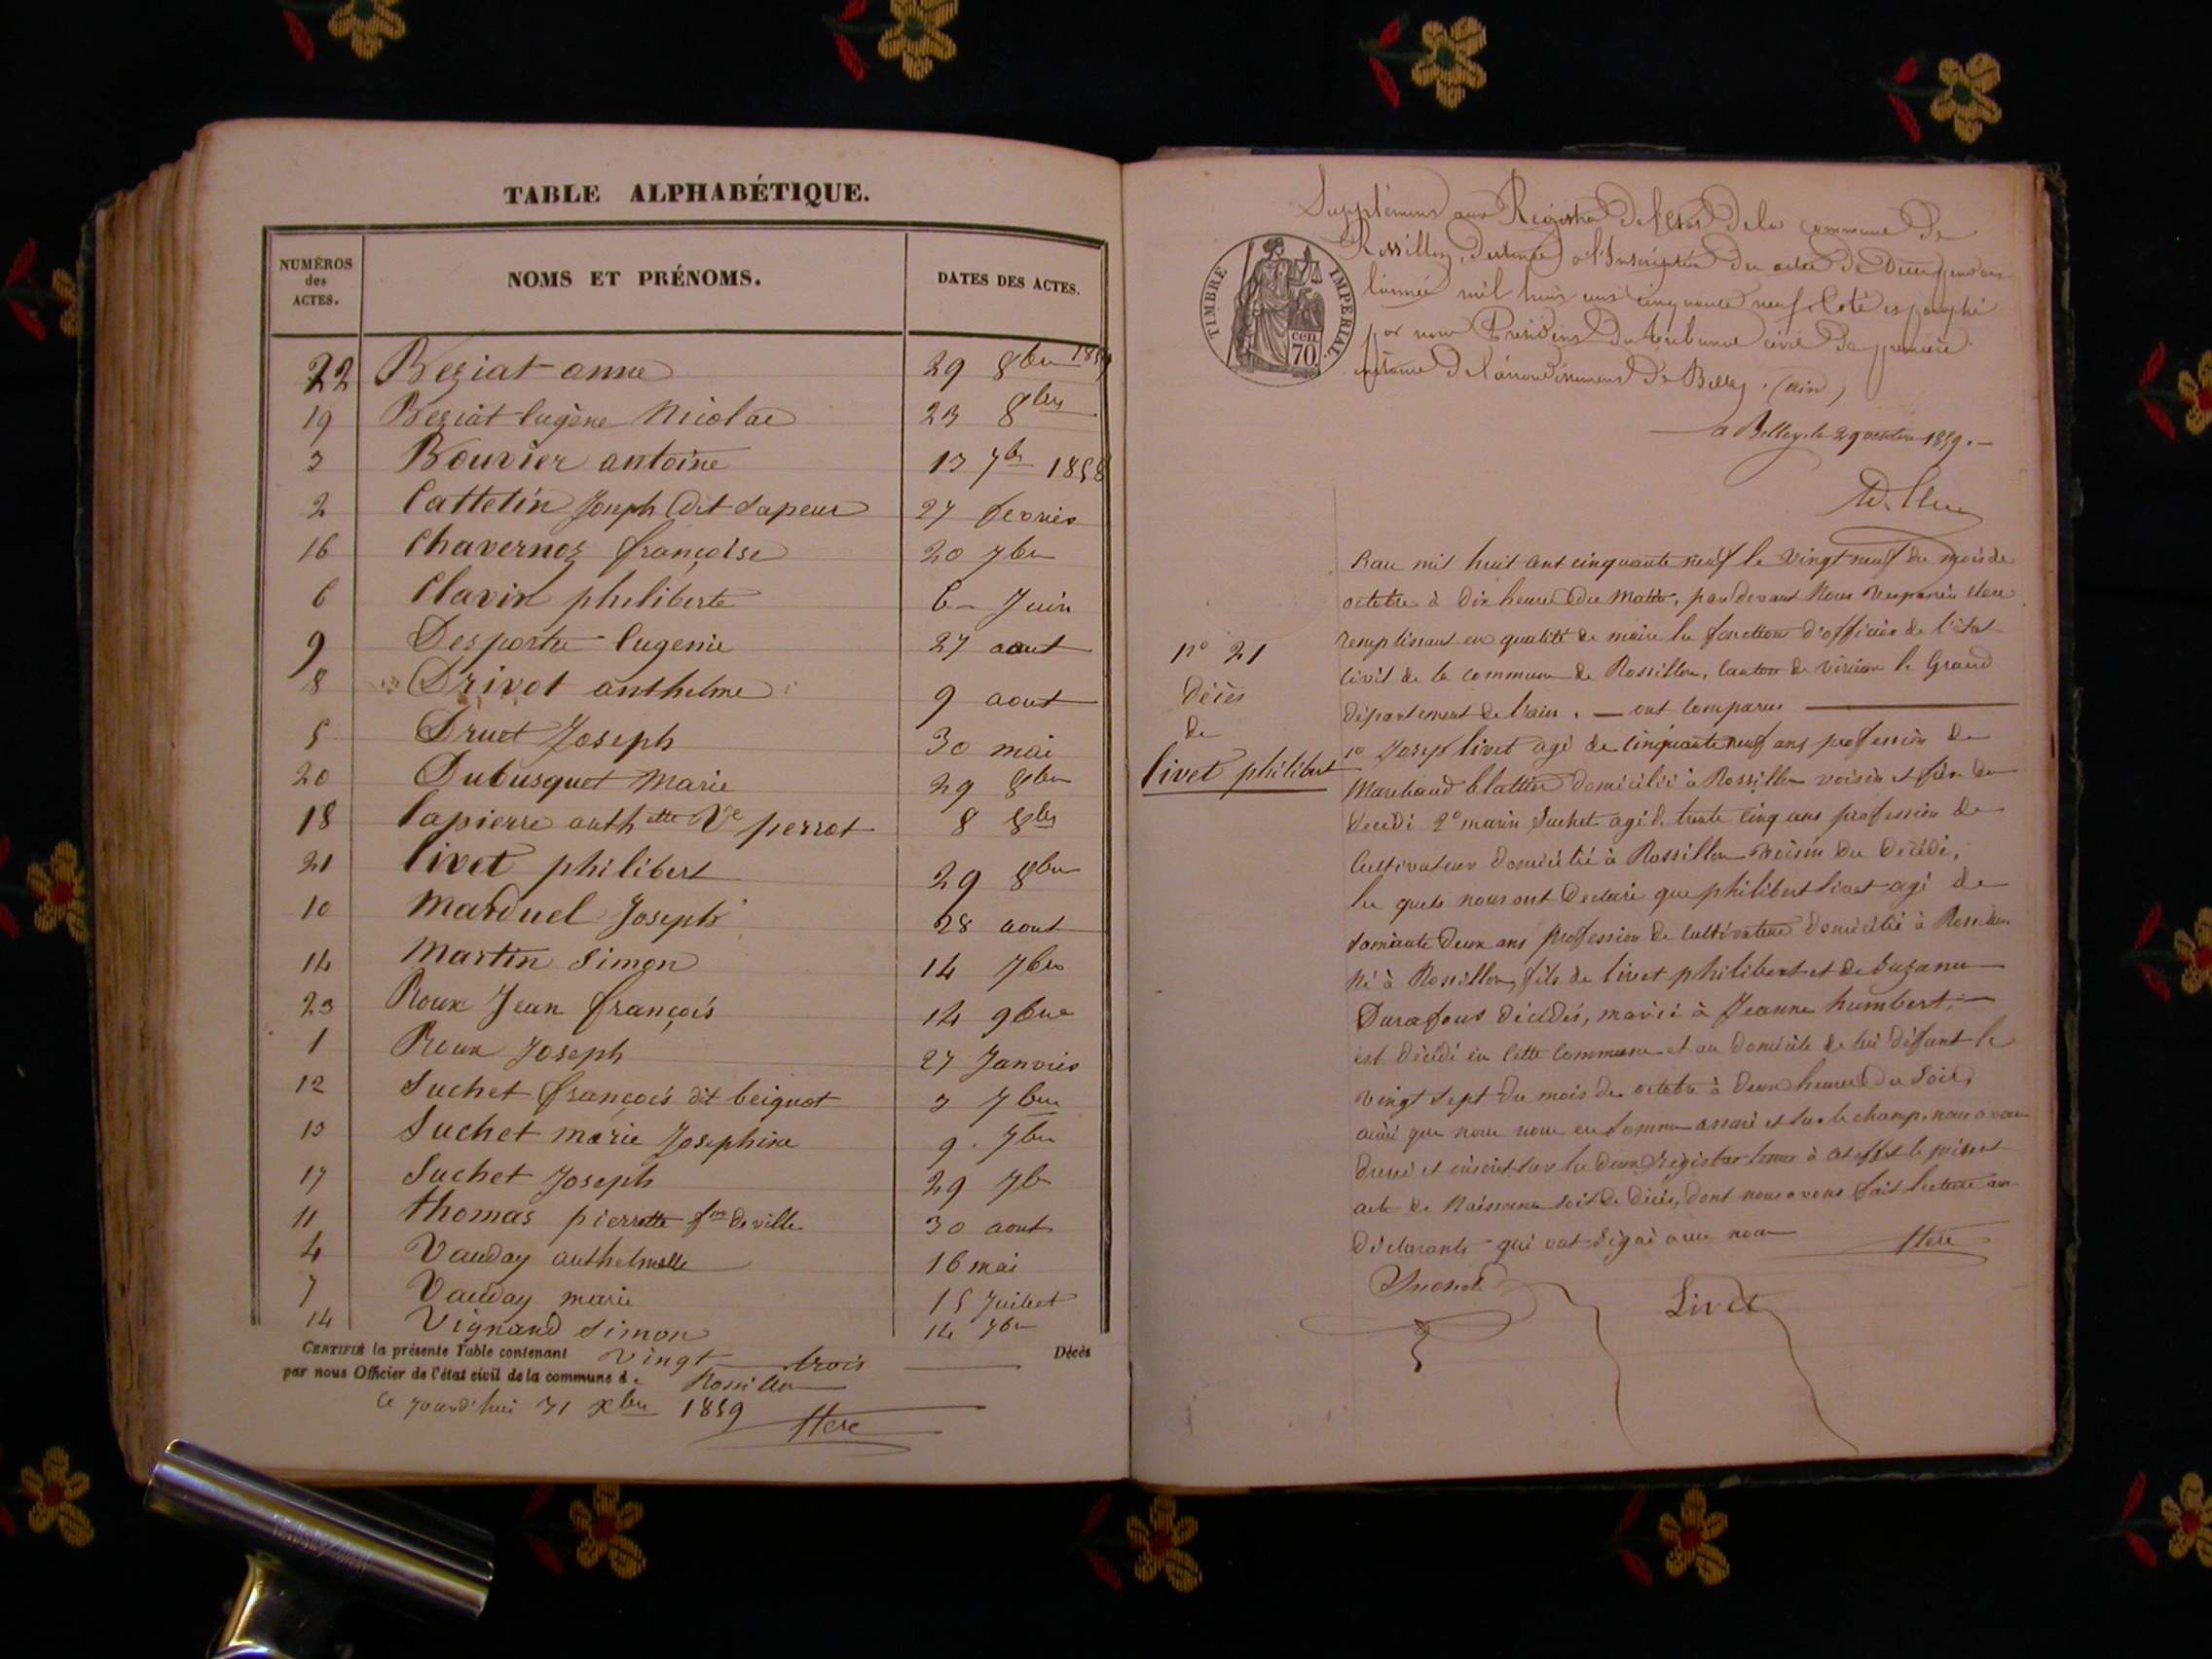 TABLE ALPHABÉTIQUE.
NUMÉROS des ACTES.
NOMS ET PRÉNOMS.
DATES DES ACTES.
22 Beziat anne 29 8bre 1859
19 Beziat Eugène Nicolas 23 8bre
3 Bouvier antoine 13 7bre 1858
2 Cattelin Joseph dit Sapeur 27 fevrier
16 Chavernoz françoise 20 7bre
6 Clavin philiberte 6 Juin
9 Desporte Eugenie 27 aout
8 Drivot anthelme 9 aout
5 Druet Joseph 30 mai
20 Dubusquet Marie 29 8bre
18 lapierre anthette Ve perrot 8 8bre
21 livet philibert 29 8bre
10 Marduel Joseph 28 aout
14 Martin Simon 14 7bre
23 Roux Jean françois 14 9bre
1 Roux Joseph 27 Janvier
12 Suchet françois dit beignot 3 7bre
13 Suchet marie Josephine 9 7bre
17 Suchet Joseph 29 7bre
11 thomas pierrette fme deville 30 aout
4 Vauday anthelmette 16 mai
7 Vauday marie 15 Juillet
14 Vignand Simon 14 7bre
CERTIFIÉ la présente Table contenant vingt trois Décès
par nous Officier de l'état civil de la commune de Rossillon
Ce jourd'hui 31 xbre 1859
Here
Supplément aux Registres de l'Etat de la commune de
Rossillon, destiné à l'Inscription des actes de Décès pendant
l'année mil huit cent cinquante neuf. Coté et paraphé
par nous Président du tribunal civil de première
instance de l'arrondissement de Belley (Ain)
TIMBRE IMPÉRIAL.
70 cen
a Belley, le 29 octobre 1859.
L'an mil huit cent cinquante neuf le vingt neuf du mois de
octobre à dix heures du matin, par devant Nous Here
remplissant en qualité de maire les fonctions d'officier de l'état
civil de la commune de Rossillon, canton de virieu le Grand
département de l'ain. — ont comparus
n° 21
Décès
de
livet philibert
1° Joseph livet agé de cinquante neuf ans profession de
Marchand blattier domicilié à Rossillon voisin et frère du
décédé 2° marin Suchet agé de trente cinq ans profession de
Cultivateur domicilié à Rossillon voisin du décédé,
les quels nous ont déclaré que philibert livet agé de
soixante deux ans profession de cultivateur domicilié à Rossillon
né à Rossillon, fils de livet philibert et de Suzanne
Durafous décédés, marié à Jeanne humbert,
est décédé en cette commune et au domicile de lui défunt le
vingt sept du mois de octobre à deux heures du soir,
ainsi que nous nous en sommes assuré et sur le champ nous avons
dressé et inscrit sur les deux registres tenus à cet effet le présent
acte de Naissance soit de décès, dont nous avons fait lecture aux
déclarants qui ont signé avec nous
Here
Livet